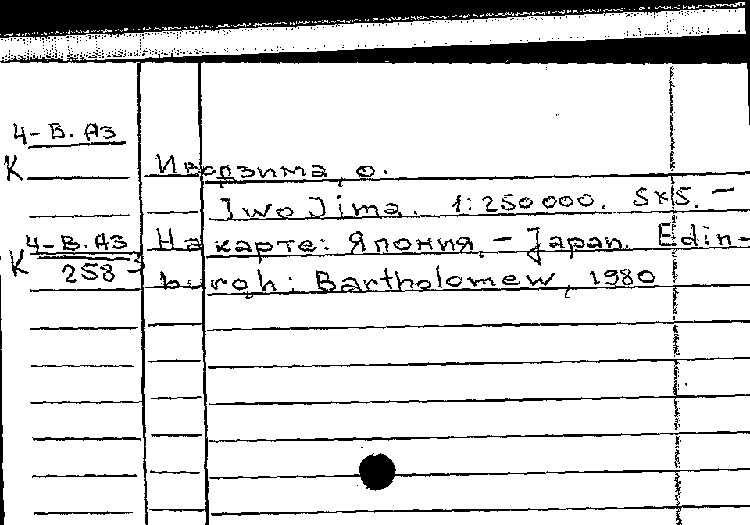 4-В.Аз
К Иводзима, о.
Iwo Jima. 1:250000. 5х5. —
К 4-В.Аз На карте: Япония. – Japan. Edin-
258-3 burgh: Bartholomew, 1980